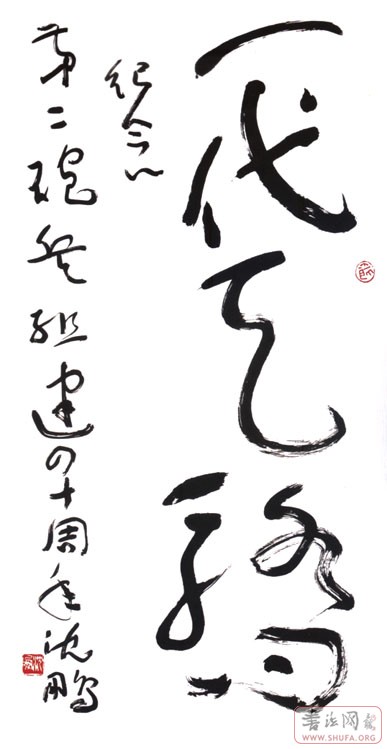 一代天骄
纪念
第二砲兵组建四十周年沈鹏
書法网报
WWW.SHUFA.ORG